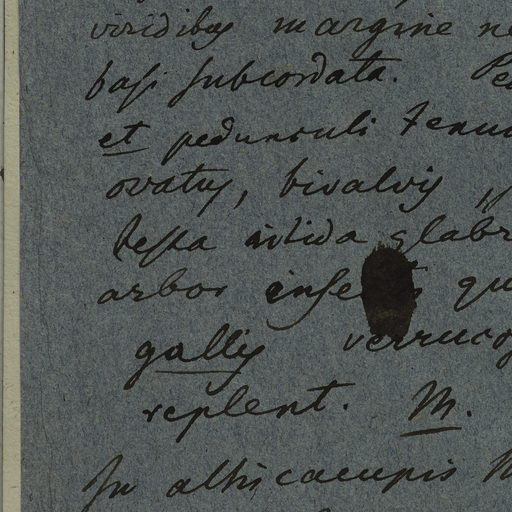 viridibus margine ne
basi subcordata. Pe
et pedunculi tenu
ovatus, bivalvis
testa nitida glabr
arbor infe qu
gallis verrucos
replent. M.
In altis